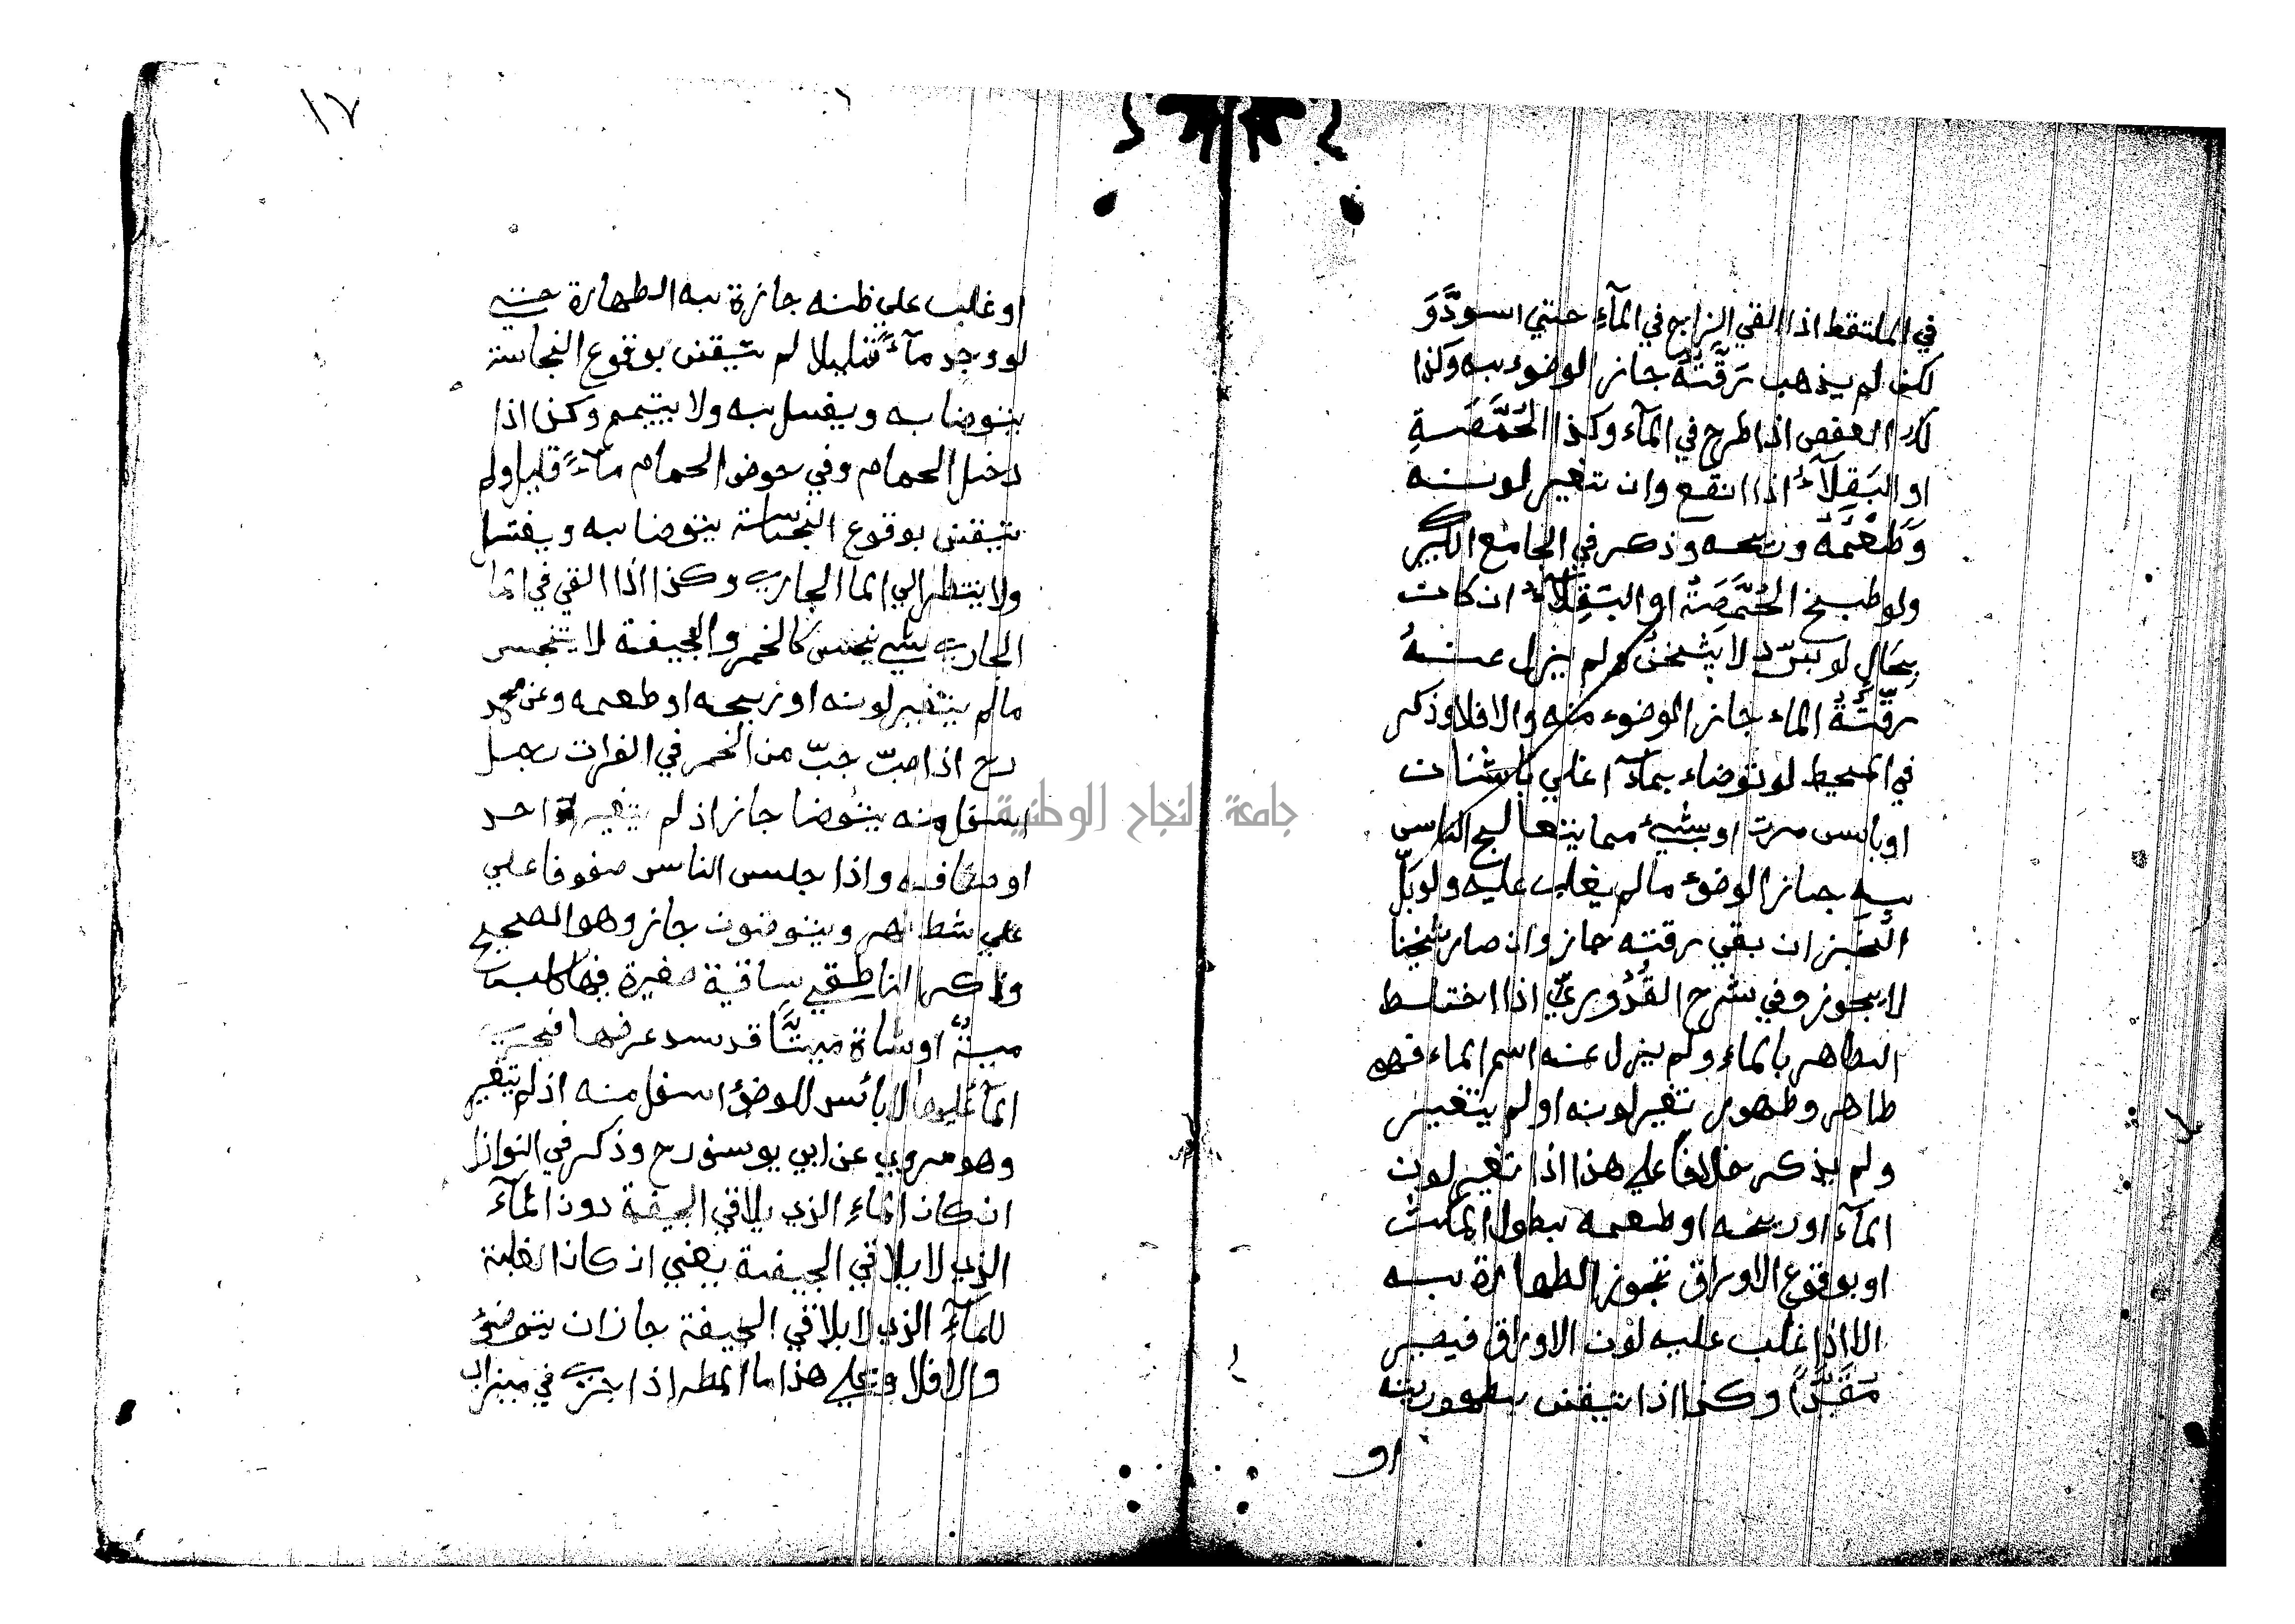 في الملتقط اذا القي الزاج في المآءِ حتي اسودَّ وَ
لكن لم يذهب رَقّتَهُ جاز الوضوء به وَكذا
العفص اذا طرح في المآء وكذا الحُمَّصَةِ
او البَقِلَآءُ اذا انقع وان تغير لونه
وَطَعْمَهُ وريحه وذكر في الجامع الكبير
ولو طبخ الحُمَّصَةُ او البَقِلَآءُ ان كانت
بِحَالٍ لو بَرّد لا يَثْخنُ ولم يزل عنهُ
رقَّتُهُ الماء جاز الوضوء منه والا فلا وذكر
في المحيط لو توضاء بمآءٍ اغلي باشنان
اوباس مرت او بشيءٍ مما يتعالج الناس
به جاز الوضوءُ ما لم يغلب عليه ولو بَلّ
الخَبز ان بقي رقته جاز وان صار ثخينا
لا يجوز وفي شرح القُدُوريِّ اذا اختلط
الطاهر بالماءِ ولم يزل عنه اسم الماء فهو
طاهر وطهور تغير لونه او لم يتغير
ولم يذكر خلافاً علي هذا اذا تغير لون
المآءِ او ريحه او طعمه بطول المكث
او بوقوع الاوراق تجوز الطهارة به
الا اذا غلب عليه لون الاوراق فيصير
مَقَيَّداً وكذا اذا تيقن بطهوريته
او
١٧
او غلب علي ظنه جازة به الطهارة حتي
لو وجد مآءً قليلا لم يتيقن بوقوع النجاسة
يتوضا به ويغسل به ولا يتيمم وكذا اذا
دخل الحمام وفي حوض الحمام مآءً قليل ولم
يتيقن بوقوع النجاسة يتوضا به ويغتسل
ولا ينتظر الي الما الجاري وكذا اذا القي في الما
الجاري شيء نجس كالخمر والجيفة لا يتنجس
مالم يتغير لونه او ريحه او طعمه وعن محمد
رح اذا صبّ جبّ من الخمر في الفرات رجل
اسفل منه يتوضا جاز اذ لم يتغير احد
اوصافه واذا جلس الناس صفوفا علي
علي شط نهر ويتوضون جاز وهو الصحيح
وذكر الناطقي ساقية صغيرة فيها كلب
ميةٌ او شاة ميتاً قد سد عرضها فيجري
المآء عليها لا بائس للوضؤ اسفل منه اذ لم يتغير
وهو مروي عن ابي يوسف رح وذكر في النوازل
ان كان الماءِ الذي يلاقي الجيفة دون المآء
الذي لا يلاقي الجيفة يعني ان كان الغلبة
للمآءِ الذي لا يلاقي الجيفة جاز ان يتوضئ
والا فلا وعلي هذا ما المطر اذا جري في ميزاب
جامعة النجاح الوطنية